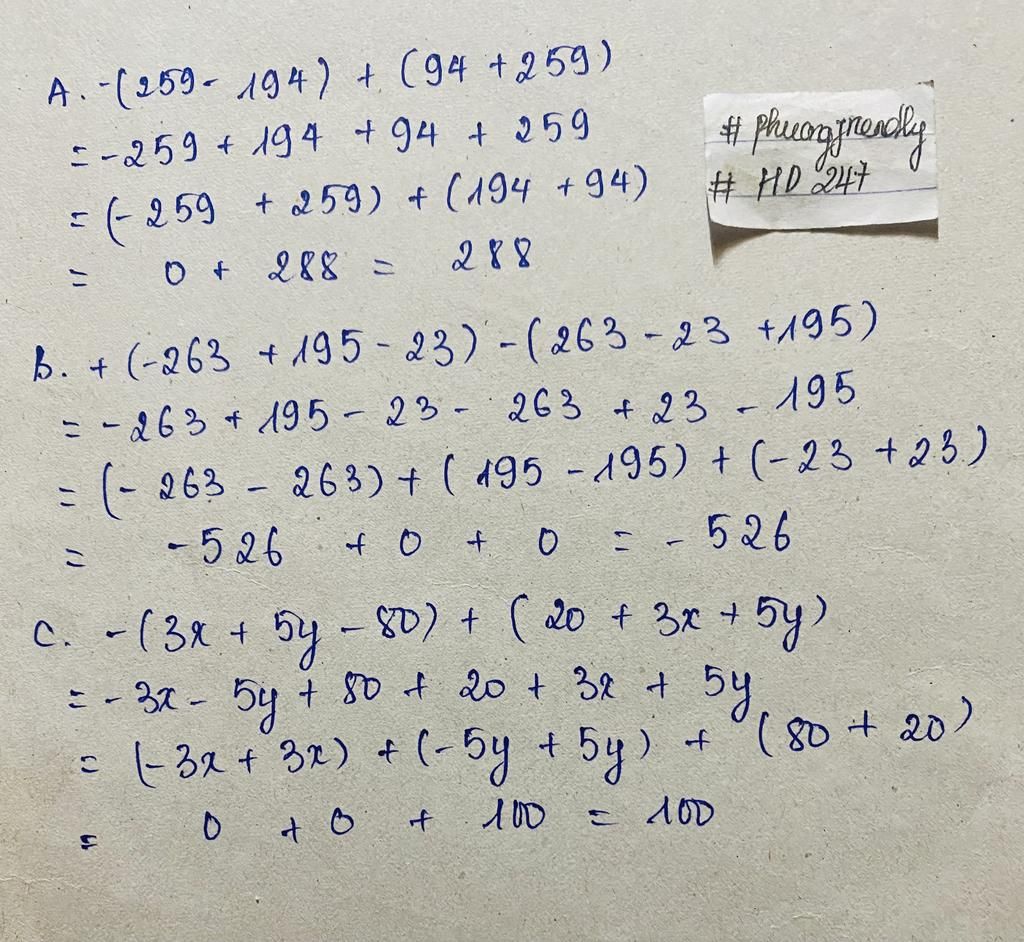 A. -(259 - 194) + (94 + 259)
= -259 + 194 + 94 + 259
= (-259 + 259) + (194 + 94)
= 0 + 288 = 288
# phuongfriendly
# HD 247
B. + (-263 + 195 - 23) - (263 - 23 + 195)
= -263 + 195 - 23 - 263 + 23 - 195
= (-263 - 263) + (195 - 195) + (-23 + 23)
= -526 + 0 + 0 = -526
C. -(3x + 5y - 80) + (20 + 3x + 5y)
= -3x - 5y + 80 + 20 + 3x + 5y
= (-3x + 3x) + (-5y + 5y) + (80 + 20)
= 0 + 0 + 100 = 100